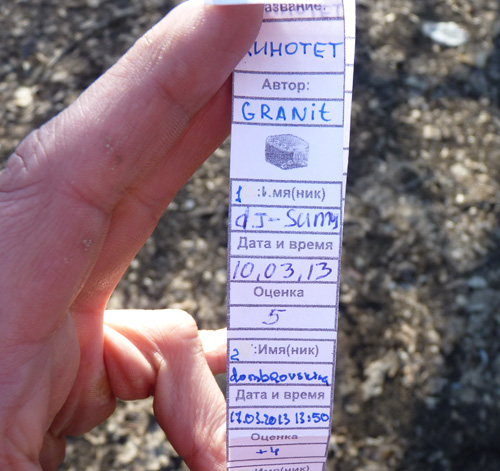 азвание:
КИНОТЕТ
Автор:
GRANit
1 :Имя(ник)
dJ-SUMY
Дата и время
10,03,13
Оценка
5
2 :Имя(ник)
dombrovskiy
Дата и время
17.03.2013 13:50
Оценка
+4
:Имя(ник)